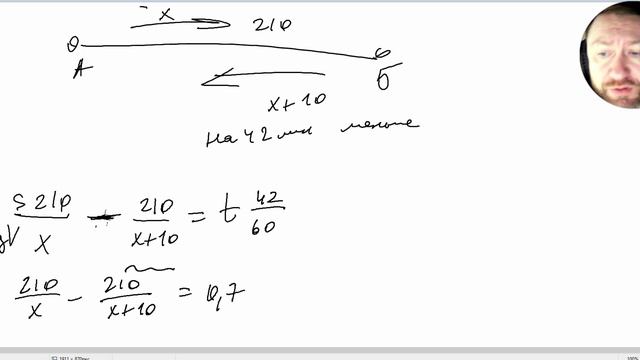 x 210
A Б
x+10
на 42 мин меньше
S 210/x - 210/(x+10) = t 42/60
V
210/x - 210/(x+10) = 0,7
100%